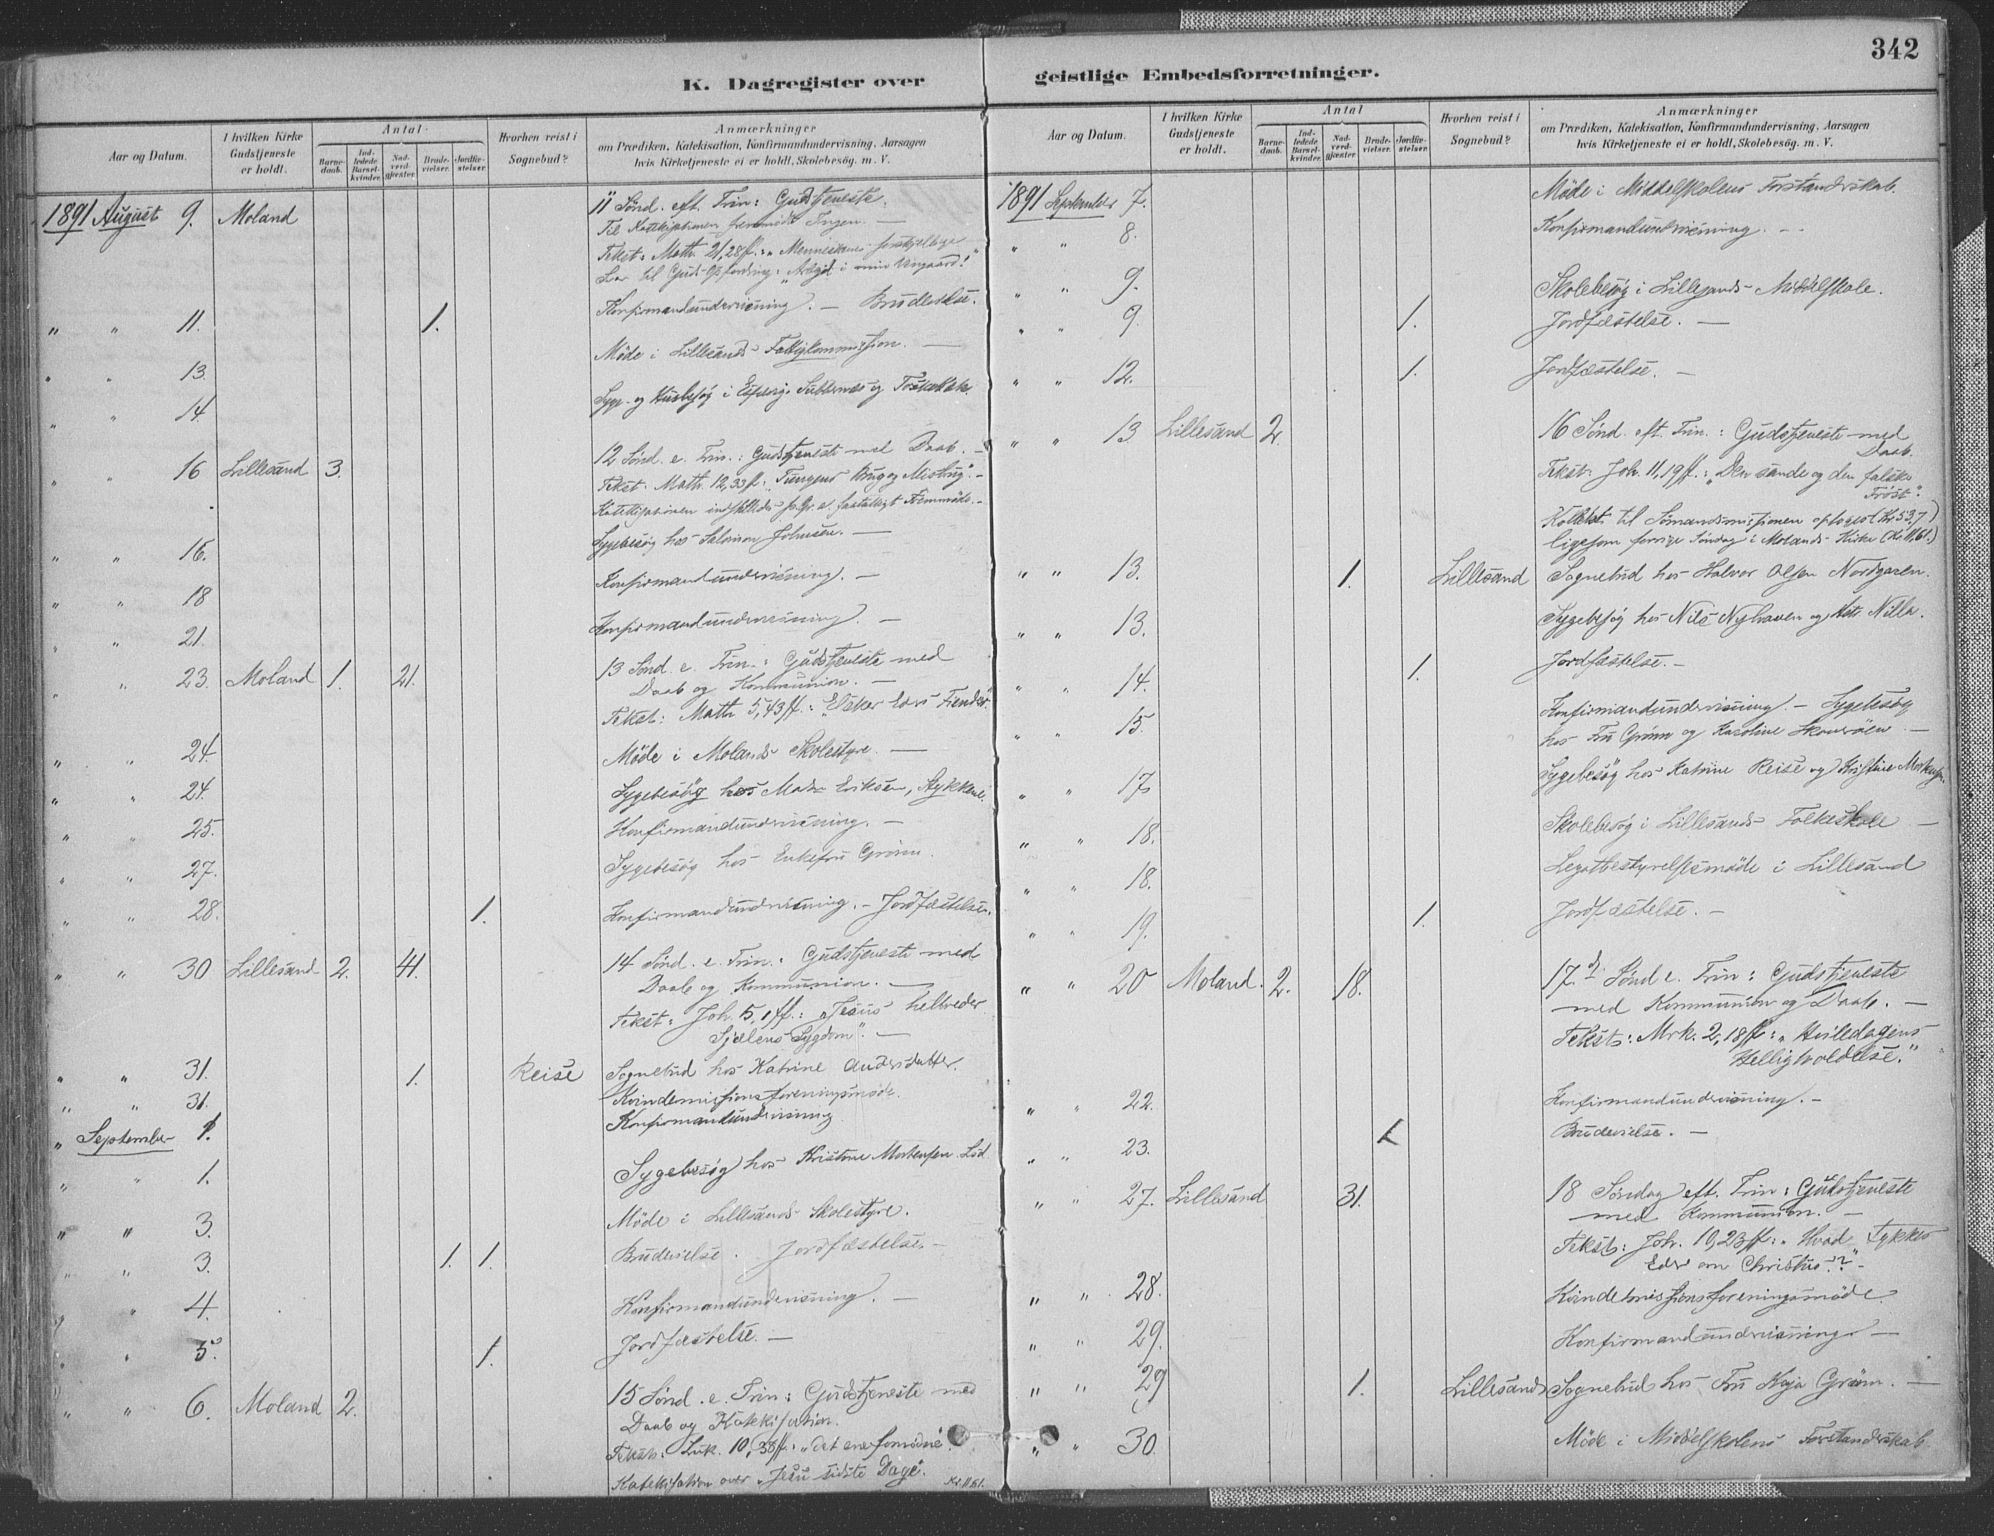 342
K. Dagregister over geistlige Embedsforretninger.
Aar og Datum.
I hvilken Kirke Gudstjeneste er holdt.
Antal
Barnedaab.
Indledede Barselkvinder.
Nadverdgjæster.
Brudevielser.
Jordfæstelser
Hvorhen reist i Sognebud?
Anmærkninger
om Prædiken, Katekisation, Konfirmandundervisning, Aarsagen
hvis Kirketjeneste ei er holdt, Skolebesög. m. V.
1891 August 9. Moland 11 Sönd. eft. Trin: Gudstjeneste.
Til Katekisationen fremmödte Ingen. —
Tekst: Matth. 21,28ff.: „Menneskenes forskjellige
Svar til Guds Opfordring: „Arbeid i min Vingaard!"
" " 11. 1. Konfirmandundervisning. — Brudevielse.
" " 13. Möde i Lillesands Fattigkommission. —
" " 14. Syge- og Husbesög i
" " 16 Lillesand 3. 12 Sönd. e. Trin.: Gudstjeneste med Daab. —
Tekst: Matth. 12,33ff.: Tungens Brug og Misbrug. —
Katekisationen indstilledes p. Gr. af faatalligt Fremmöde. —
" " 16. Sygebesög hos Salomon Johnsen. —
" " 18 Konfirmandundervisning. —
" " 21. Konfirmandundervisning. —
" " 23. Moland 1. 21. 13 Sönd. e. Trin.: Gudstjeneste med
Daab og Kommunion. —
Tekst: Matth 5,43ff.: „Elsker Eders Fiender."
" " 24. Möde i Molands Skolestyre. —
" " 24. Sygebesög hos Mads Eriksen,
" " 25. Konfirmandundervisning. —
" " 27. Sygebesög hos Enkefru Grönn.
" " 28. 1. Konfirmandundervisning. — Jordfæstelse.
" " 30 Lillesand 2. 41. 14 Sönd. e. Trin.: Gudstjeneste med
Daab og Kommunion. —
Tekst: Joh. 5,1ff.: „Jesus helbreder
Sjælens Sygdom". —
" " 31. 1. Reise Sognebud hos Katrine Andersdatter.
" " 31. Kvindemissionsforeningsmöde.
" September 1. Konfirmandundervisning
" " 1. Sygebesög hos Kristine Mortensen
" " 3. Möde i Lillesands Skolestyre.
" " 3. 1. 1. Brudevielse. Jordfæstelse. —
" " 4. Konfirmandundervisning. —
" " 5. 1. Jordfæstelse. —
" " 6. Moland 2. 15 Sönd. e. Trin: Gudstjeneste med
Daab og Katekisation.
Tekst: Luk. 10,38ff.: „det ene fornödne".
Katekisation over „Jesu sidste Dage". Kr. 11.61.
Aar og Datum.
I hvilken Kirke Gudstjeneste er holdt.
Antal
Barnedaab.
Indledede Barselkvinder.
Nadverdgjæster.
Brudevielser.
Jordfæstelser
Hvorhen reist i Sognebud?
Anmærkninger
om Prædiken, Katekisation, Konfirmandundervisning, Aarsagen
hvis Kirketjeneste ei er holdt, Skolebesög. m. V.
1891 September 7. Möde i Middelskolens Forstanderskab.
" " 8. Konfirmandundervisning. —
" " 9. Skolebesög i Lillesands Middelskole.
" " 9. 1. Jordfæstelse. —
" " 12. 1. Jordfæstelse. —
" " 13. Lillesand 2. 16 Sönd. eft. Trin.: Gudstjeneste med
Daab.
Tekst: Joh. 11,19ff.: „Den sande og den falske
Tröst".
Kollekt til Sömandsmissionen optoges (Kr. 53,7)
ligesom forrige Söndag i Molands Kirke (Kr. 11.61.)
" " 13. 1. Lillesand Sognebud hos Halvor Olsen Nordgaren.
" " 13. Sygebesög hos Nils Nyhaven og
" " 14. 1. Jordfæstelse. —
" " 15. Konfirmandundervisning. — Sygebesög
hos Fru Grönn og Karoline —
" " 17 Sygebesög hos Katrine Reise og Kristine Mortensen.
" " 18. Skolebesög i Lillesands Folkeskole —
" " 18. Legatbestyrelsesmöde i Lillesand
" " 19. 1. Jordfæstelse. —
" " 20 Moland. 2. 18. 17. Sönd. e. Trin: Gudstjeneste
med Kommunion og Daab. —
Tekst: Mrk. 2,18ff: „Hviledagens
Helligholdelse."
" " 22. Konfirmandundervisning. —
" " 23. 1. Brudevielse. —
" " 27. Lillesand 31. 18 Söndag eft. Trin: Gudstjeneste
med Kommunion. —
Tekst: Joh. 10,23ff: „Hvad tykkes
Eder om Christus?" —
" " 28. Kvindemissionsforeningsmöde.
" " 29. Konfirmandundervisning. —
" " 29 1. Lillesand Sognebud hos Fru Kaja Grönn. —
" " 30. Möde i Middelskolens Forstanderskab.